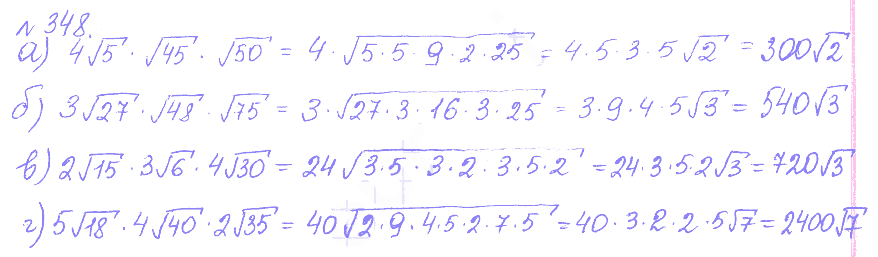 № 348.
а) 4√5 · √45 · √50 = 4 · √(5 · 5 · 9 · 2 · 25) = 4 · 5 · 3 · 5√2 = 300√2
б) 3√27 · √48 · √75 = 3 · √(27 · 3 · 16 · 3 · 25) = 3 · 9 · 4 · 5√3 = 540√3
в) 2√15 · 3√6 · 4√30 = 24√(3 · 5 · 3 · 2 · 3 · 5 · 2) = 24 · 3 · 5 · 2√3 = 720√3
г) 5√18 · 4√40 · 2√35 = 40√(2 · 9 · 4 · 5 · 2 · 7 · 5) = 40 · 3 · 2 · 2 · 5√7 = 2400√7